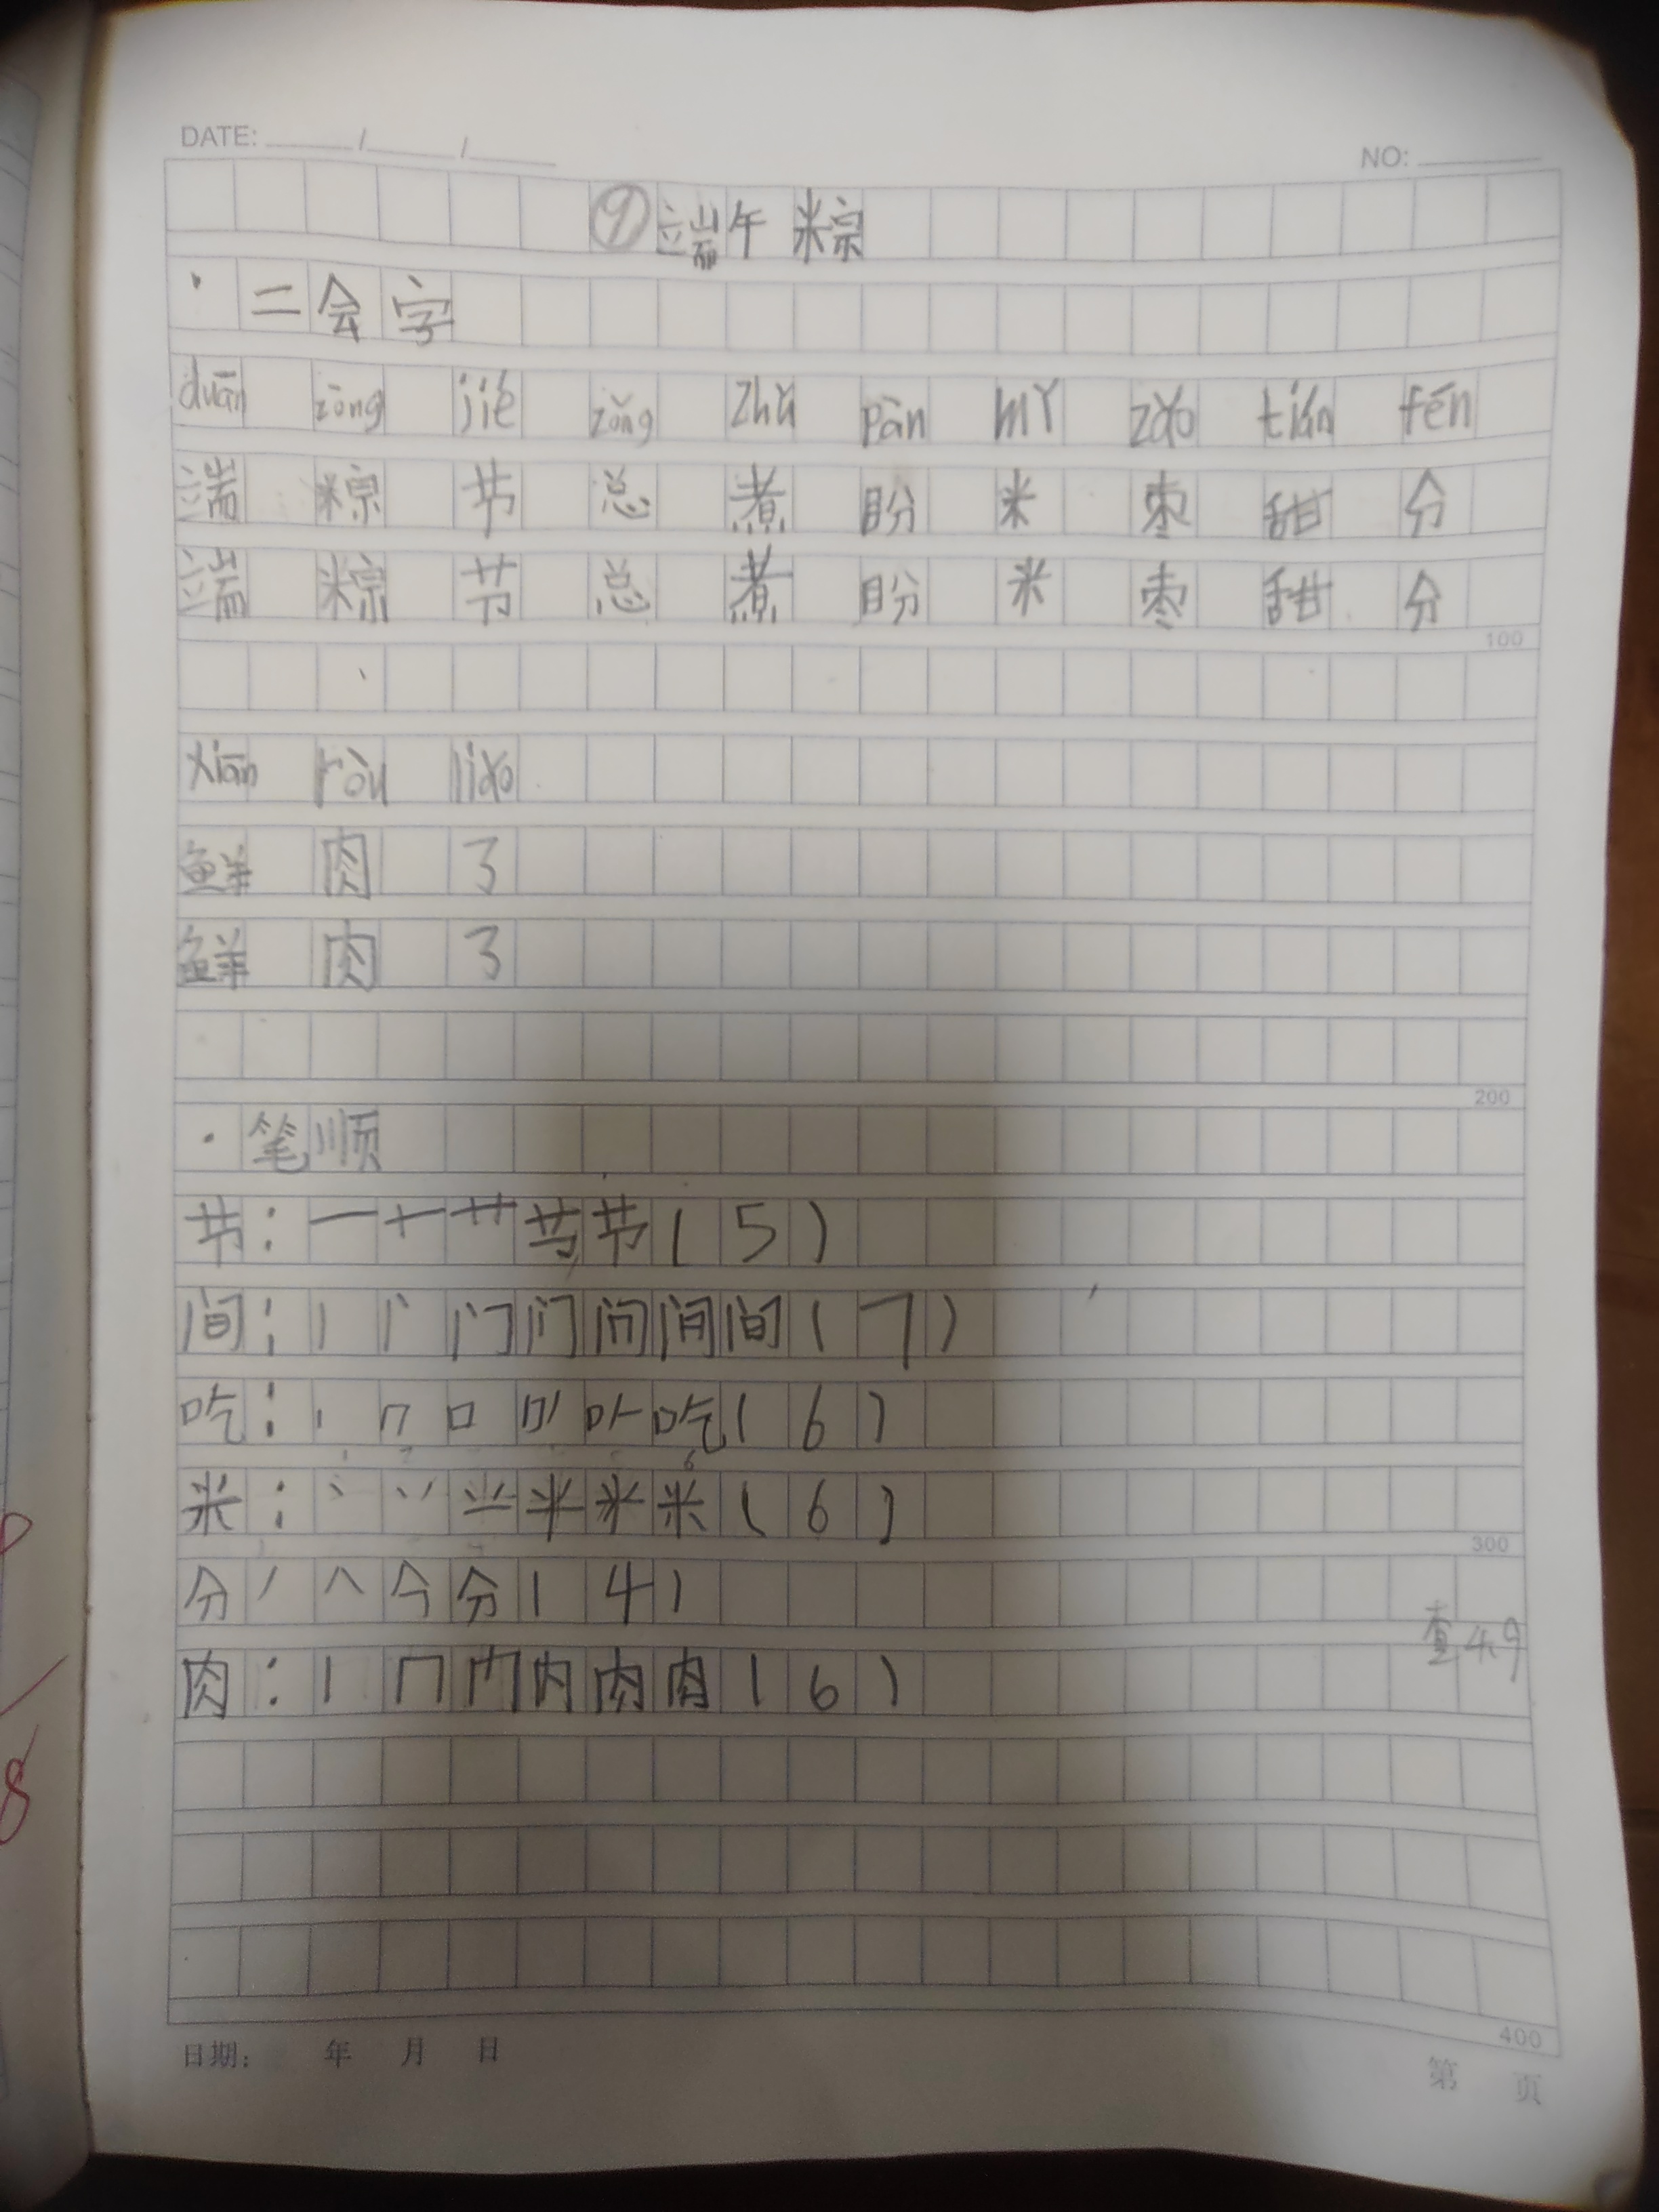 DATE: / /
NO:
⑨端午粽
·二会字
duān zòng jié zǒng zhǔ pàn mǐ zǎo tián fēn
端 粽 节 总 煮 盼 米 枣 甜 分
端 粽 节 总 煮 盼 米 枣 甜 分
100
xiān ròu liǎo
鲜 肉 了
鲜 肉 了
200
·笔顺
节:一 十 艹 节(5)
间:丨 门 间(7)
吃:丨 口 吃(6)
米:丶 丷 米(6)
300
分 丿 八 分(4)
查4.9
肉:丨 冂 内 肉(6)
400
日期: 年 月 日
第 页
8